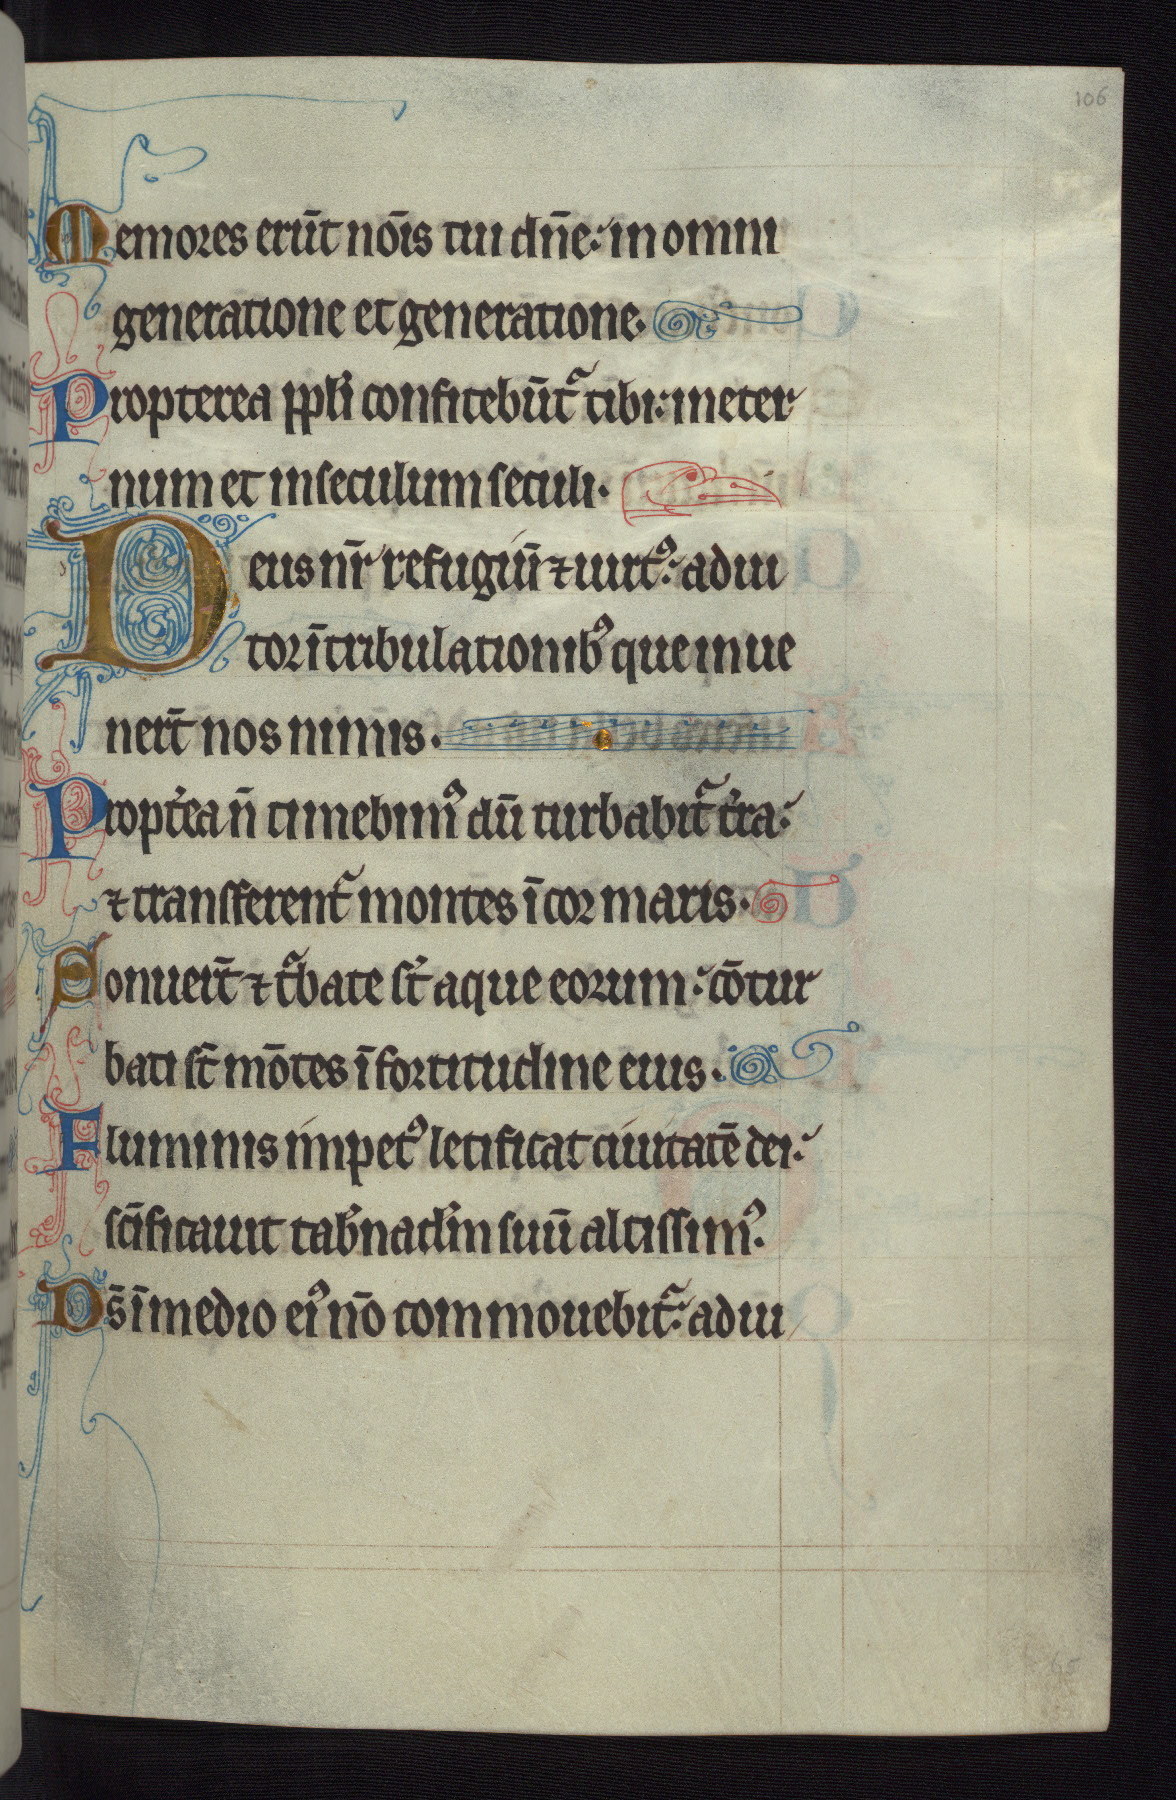 106
Memores erūt nōis tui dn̄e: in omni
generatione et generatione.
Propterea ppl̄i confitebūt᷑ tibi: in eter
num et in seculum seculi.
Deus nr̄ refugiū ⁊ uirtꝰ: adiu
tor ī tribulationibꝰ que inue
nerūt nos nimis.
Propt̄ea n̄ timebimꝰ dū turbabit᷑ t̄ra:
⁊ transferent᷑ montes ī cor maris.
Sonuer̄t ⁊ tᷓbate st̄ aque eorum: cōtur
bati st̄ mōtes ī fortitudine eius.
Fluminis impetꝰ letificat ciuitatē dei:
sc̄ificauit tab̄nacl̄m suū altissimꝰ.
Ds̄ ī medio eiꝰ nō commouebit᷑: adiu
65